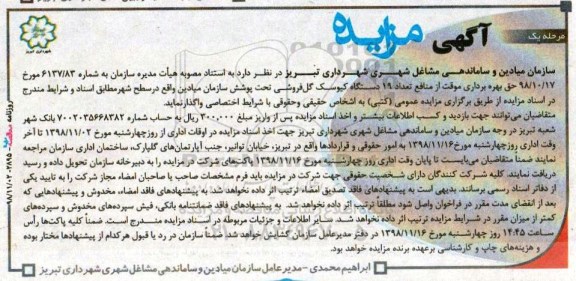 مرحله یک
آگهی مزایده
شهرداری تبریز
سازمان میادین و ساماندهی مشاغل شهری شهرداری تبریز در نظر دارد به استناد مصوبه هیأت مدیره سازمان به شماره ۶۱۳۷/۸۳ مورخ
۹۸/۱۰/۱۷ حق بهره برداری موقت از منافع تعداد ۱۹ دستگاه کیوسک گل‌فروشی تحت پوشش سازمان میادین واقع درسطح شهر مطابق اسناد و شرایط مندرج
در اسناد مزایده از طریق برگزاری مزایده عمومی (کتبی) به اشخاص حقیقی وحقوقی با شرایط اختصاصی واگذار نماید.
متقاضیان می‌توانند جهت بازدید و کسب اطلاعات بیشتر و اخذ اسناد مزایده پس از واریز مبلغ ۳۰۰،۰۰۰ ریال به حساب شماره ۷۰۰۲۰۳۵۶۶۸۳۸۲ بانک شهر
شعبه تبریز در وجه سازمان میادین و ساماندهی مشاغل شهری شهرداری تبریز جهت اخذ اسناد مزایده در اوقات اداری از روز چهارشنبه مورخ ۱۳۹۸/۱۱/۰۲ تا آخر
وقت اداری روز چهارشنبه مورخ ۱۳۹۸/۱۱/۱۶ به امور حقوقی و قراردادها واقع در تبریز، خیابان توانیر، جنب آپارتمان‌های گلپارک، ساختمان اداری سازمان مراجعه
نمایند ضمناً متقاضیان می‌بایست تا پایان وقت اداری روز چهارشنبه مورخ ۱۳۹۸/۱۱/۱۶ پاکت‌های شرکت در مزایده را به دبیرخانه سازمان تحویل داده و رسید
دریافت نمایند. کلیه شرکت کنندگان دارای شخصیت حقوقی جهت شرکت در مزایده باید فرم مشخصات صاحب یا صاحبان امضاء مجاز شرکت را به تایید یکی
از دفاتر اسناد رسمی برسانند. بدیهی است به پیشنهادهای فاقد تصدیق امضاء ترتیب اثر داده نخواهد شد. به پیشنهادهای فاقد امضاء، مخدوش و پیشنهادهایی که
بعد از انقضای مدت مقرر در فراخوان واصل شود مطلقاً ترتیب اثر داده نخواهد شد. به پیشنهادهای فاقد ضمانتنامه بانکی، فیش سپرده‌های مخدوش و سپرده‌های
کمتر از میزان مقرر در شرایط مزایده ترتیب اثر داده نخواهد شد. سایر اطلاعات و جزئیات مربوطه در اسناد مزایده مندرج است. ضمناً کلیه پاکت‌ها رأس
ساعت ۱۴:۴۵ روز چهارشنبه مورخ ۱۳۹۸/۱۱/۱۶ در دفتر مدیرعامل سازمان گشایش خواهد شد. ضمناً سازمان در رد یا قبول هر کدام از پیشنهادها مختار بوده
و هزینه‌های چاپ و کارشناسی برعهده برنده مزایده خواهد بود.
ابراهیم محمدی - مدیرعامل سازمان میادین و ساماندهی مشاغل شهری شهرداری تبریز